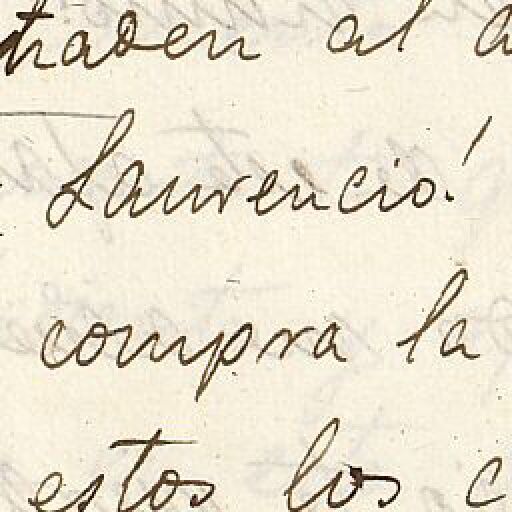 traden al a
Laurencio!
compra la
estos los c